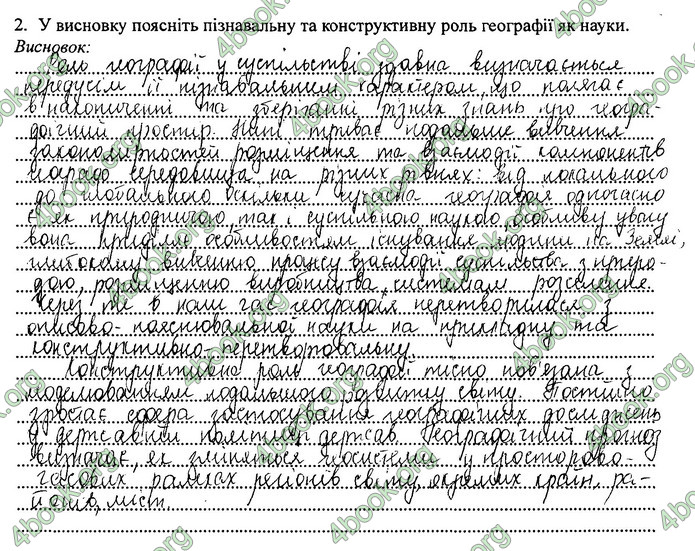 2. У висновку поясніть пізнавальну та конструктивну роль географії як науки.
Висновок:
Роль географії у суспільстві здавна визначається
передусім її пізнавальним характером, що полягає
в накопиченні та зберганні різних знань про геогра-
фічний простір. Нині триває подальше вивчення
закономірностей розміщення та взаємодії компонентів
природо середовища на різних рівнях: від локального
до глобального. Оскільки сучасна географія одночасно
є як природничою, так і суспільною наукою особливу увагу
вона приділяє особливостям існування людини на Землі,
вивченню процесу взаємодії суспільства з приро-
дою, розміщенню виробництва, системам розселення.
Через те в наш час географія перетворилася з
описово-пояснювальної науки на прикладну та
конструктивно-перетворювальну.
Конструктивна роль географії тісно пов'язана з
моделюванням подальшого розвитку світу. Постійно
зростає сфера застосування географічних досліджень
у державній політиці держав. Географічний прогноз
визначає, як зміняться геосистеми у просторово-
часових рамках регіонів світу, окремих країн, ра-
йонів, міст.
4book.org